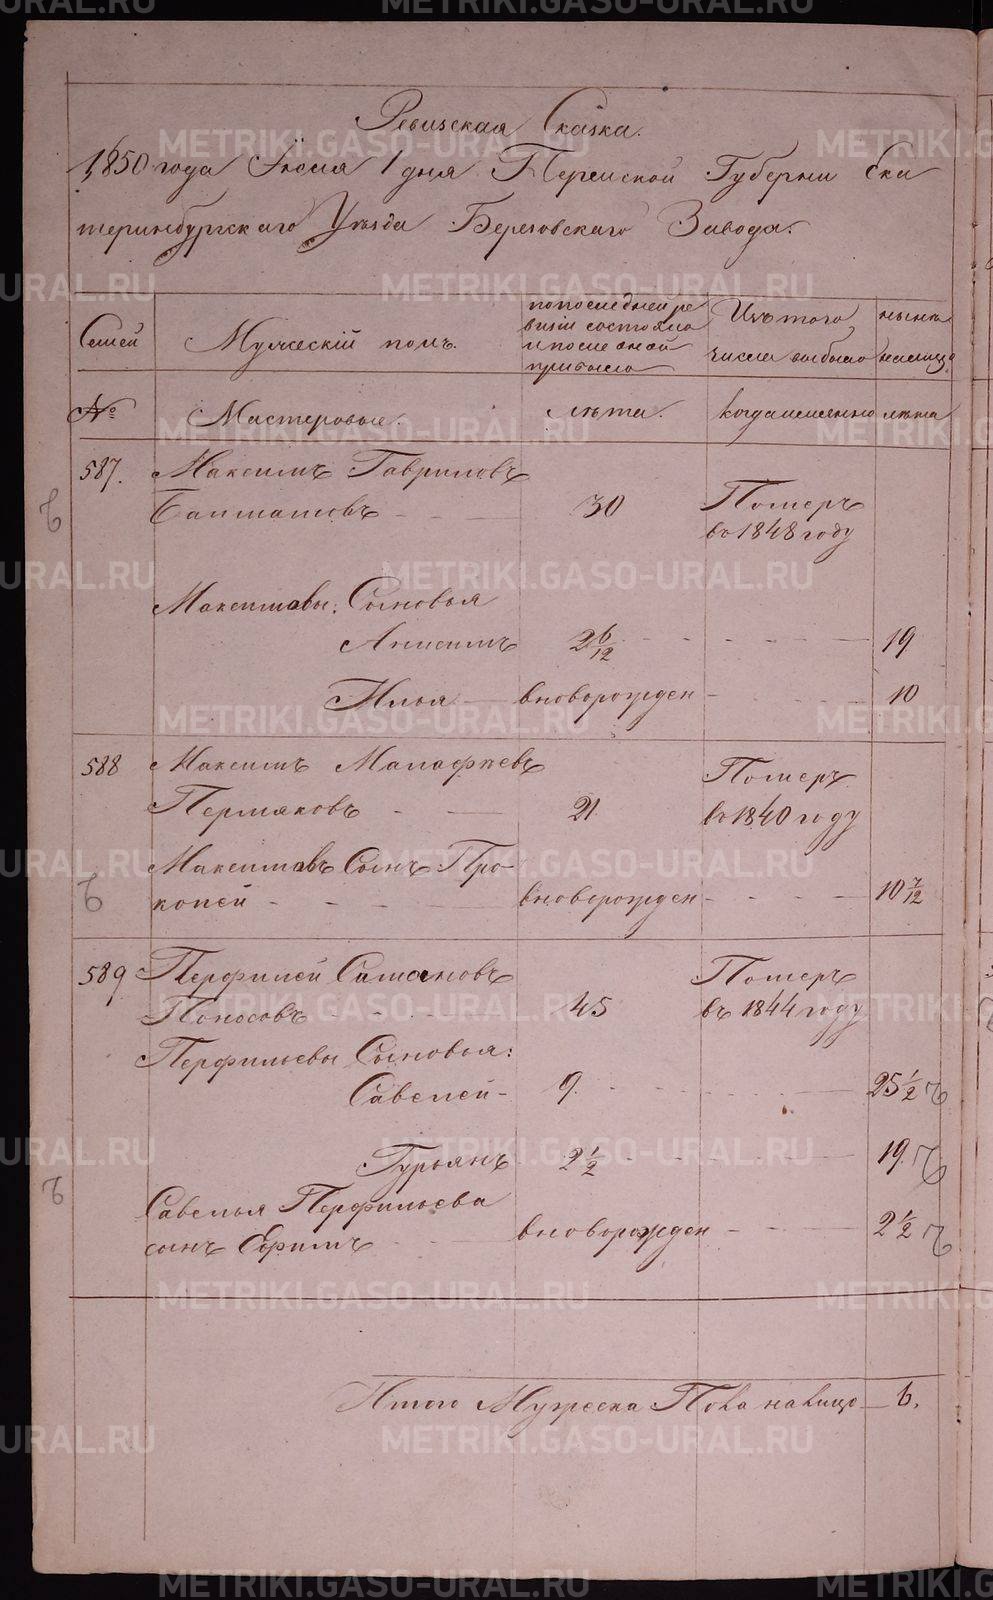 Ревизская Сказка.
1850 года Июля 1 дня Пермской Губерни Ека
теринбургскаго Уѣзда Березовскаго Завода.
Семей
Мужескій полъ.
по последней ре
визіи состояло
и после оной
прибыло
Изъ того
числа выбыло
нынѣ
налицо
№
Мастеровые.
лѣта.
когда именно
лѣта
587.
Максимъ Гавриловъ
30
Померъ
в 1848 году
Максимовы: Сыновья
Анисимъ
2 6/12
19
Илья
вноворожден
10
588
Максимъ Малафѣевъ
Пермяковъ
21
Померъ
въ 1840 году
Максимовъ Сынъ Про-
копей
вноворожден
10 7/12
589
Перфилей Симоновъ
Поносовъ
45
Померъ
въ 1844 году
Перфильевы Сыновья:
Савелей
9.
25 1/2
Гурьянъ
2 1/2
19
Савелья Перфильева
сынъ Ефимъ
вноворожден
2 1/2
Итого Мужеска Пола налицо
6.
METRIKI.GASO-URAL.RU